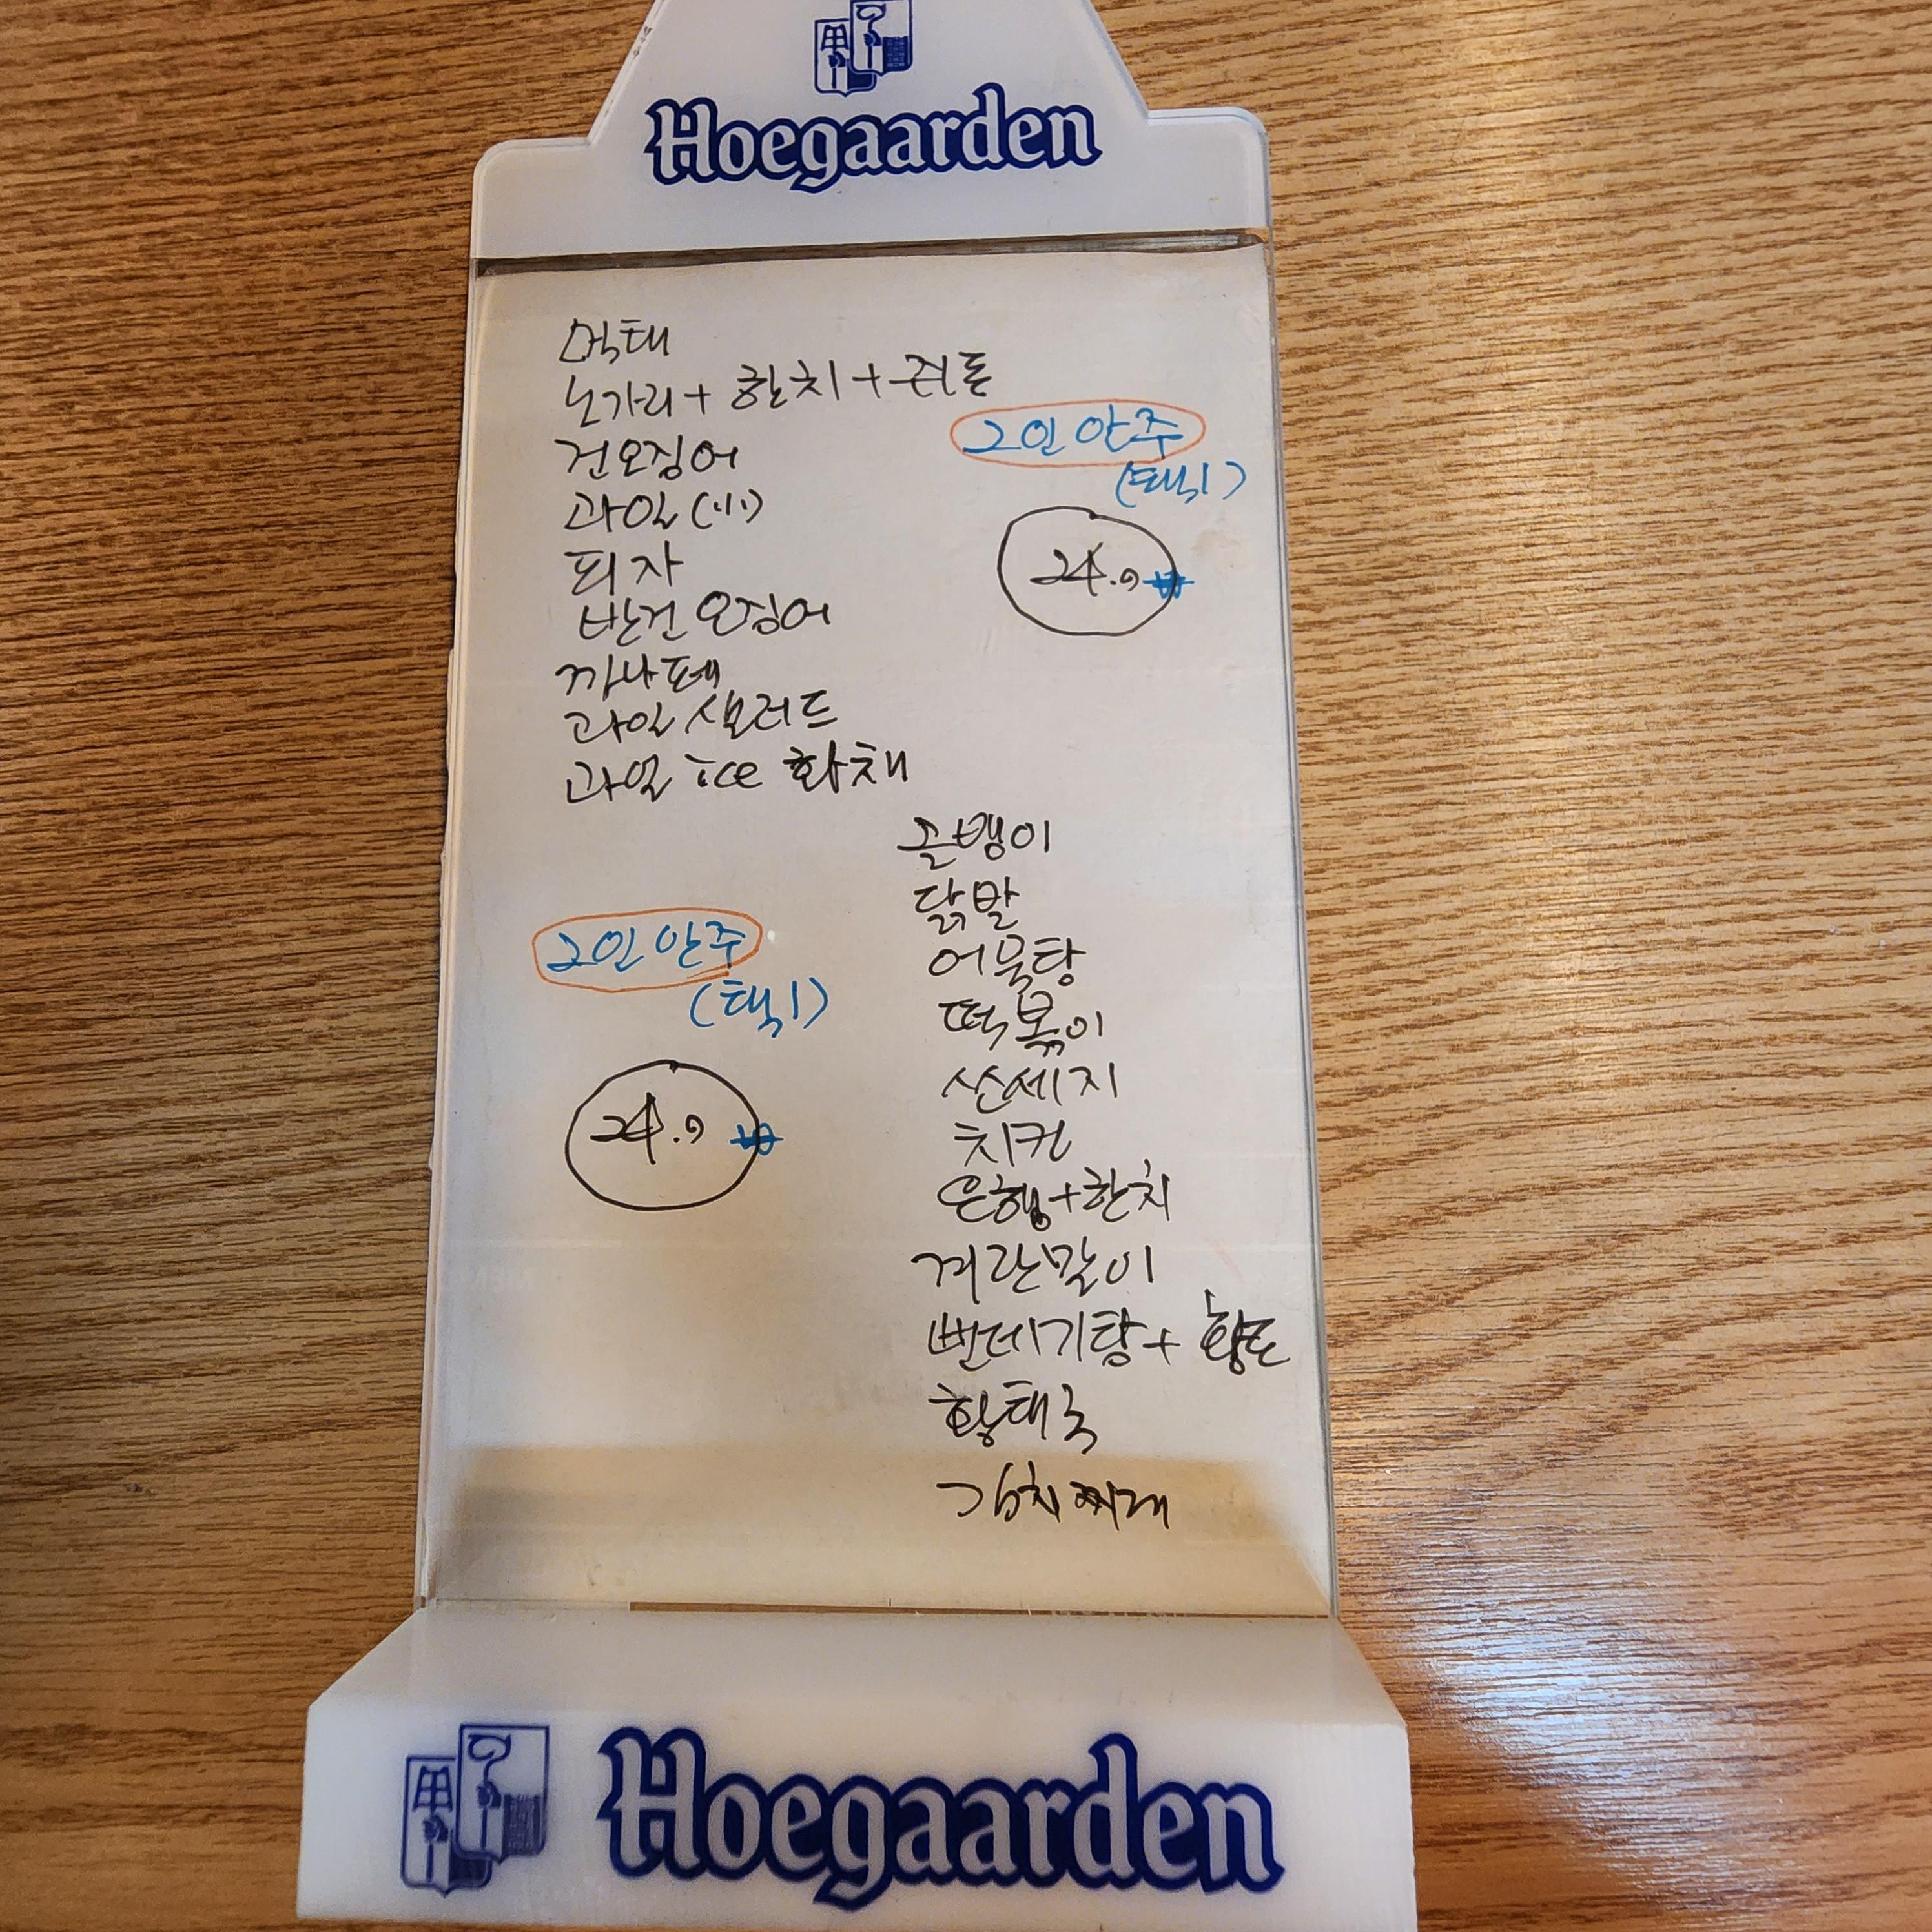 Hoegaarden
먹태
노가리+ 한치+쥐포
건오징어
2인 안주
(택1)
과일(小)
24.9 ₩
피자
반건 오징어
까나페
과일 샐러드
과일 ice 화채
골뱅이
닭발
2인 안주
어묵탕
(택1)
떡볶이
쏘세지
24.9 ₩
치킨
은행+한치
계란말이
번데기탕+ 황도
황태국
김치찌개
Hoegaarden